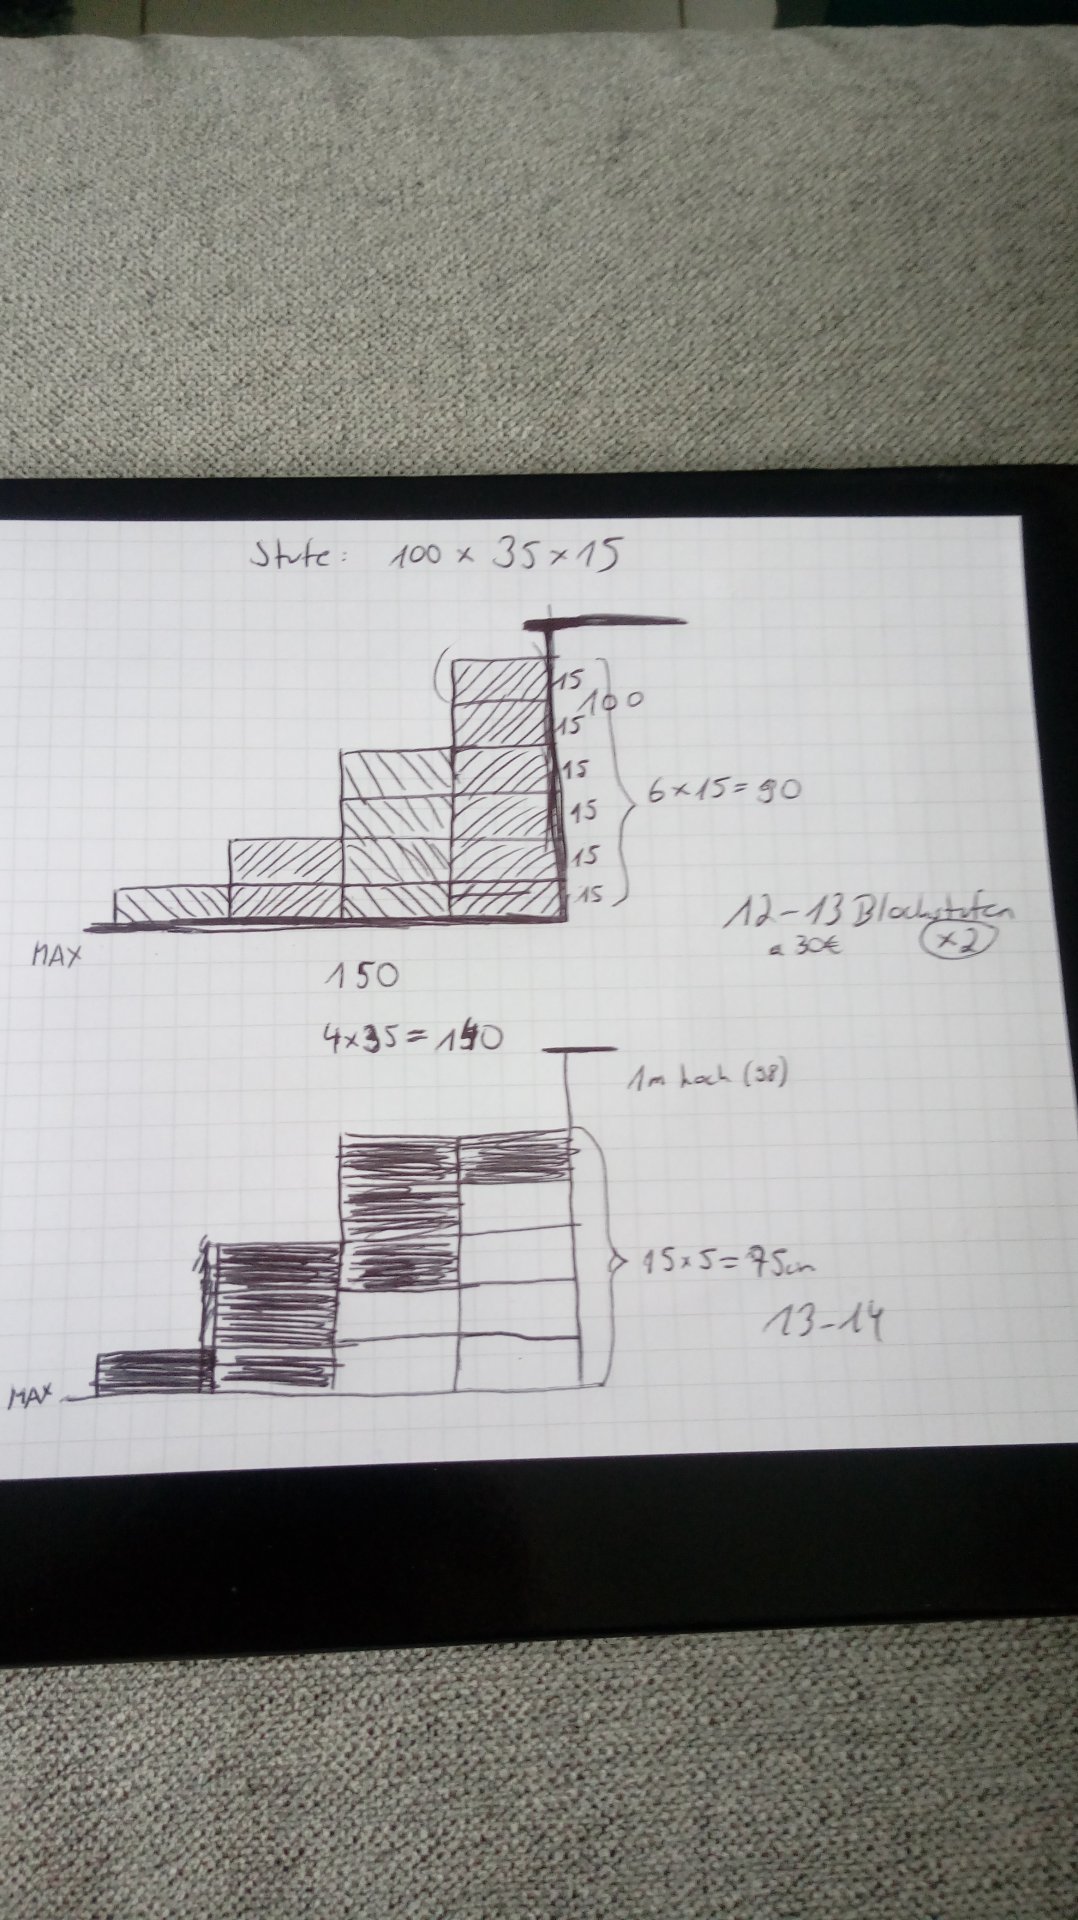 Stufe: 100 x 35 x 15
15
100
15
15
15
15
15
6 x 15 = 90
12-13 Blockstufen
a 30€
x2
MAX
150
4x35 = 140
1m hoch (98)
15x5 = 75cm
13-14
MAX